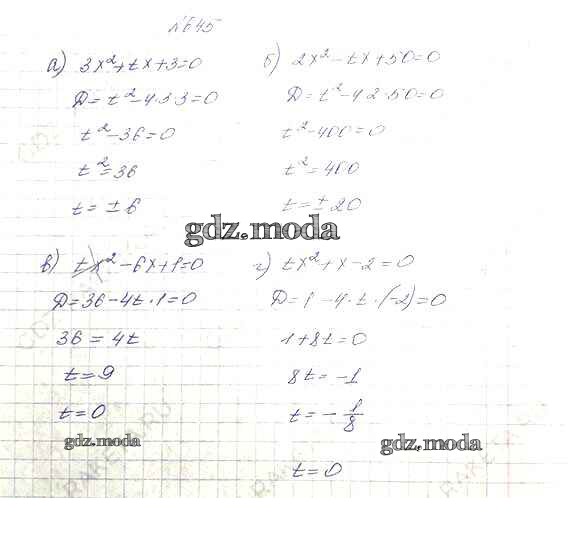 №645
а) 3x²+tx+3=0
D=t²-4·3·3=0
t²-36=0
t²=36
t=±6
б) 2x²-tx+50=0
D=t²-4·2·50=0
t²-400=0
t²=400
t=±20
gdz.moda
в) tx²-6x+1=0
D=36-4t·1=0
36=4t
t=9
t=0
gdz.moda
г) tx²+x-2=0
D=1-4·t·(-2)=0
1+8t=0
8t=-1
t=-1/8
gdz.moda
t=0